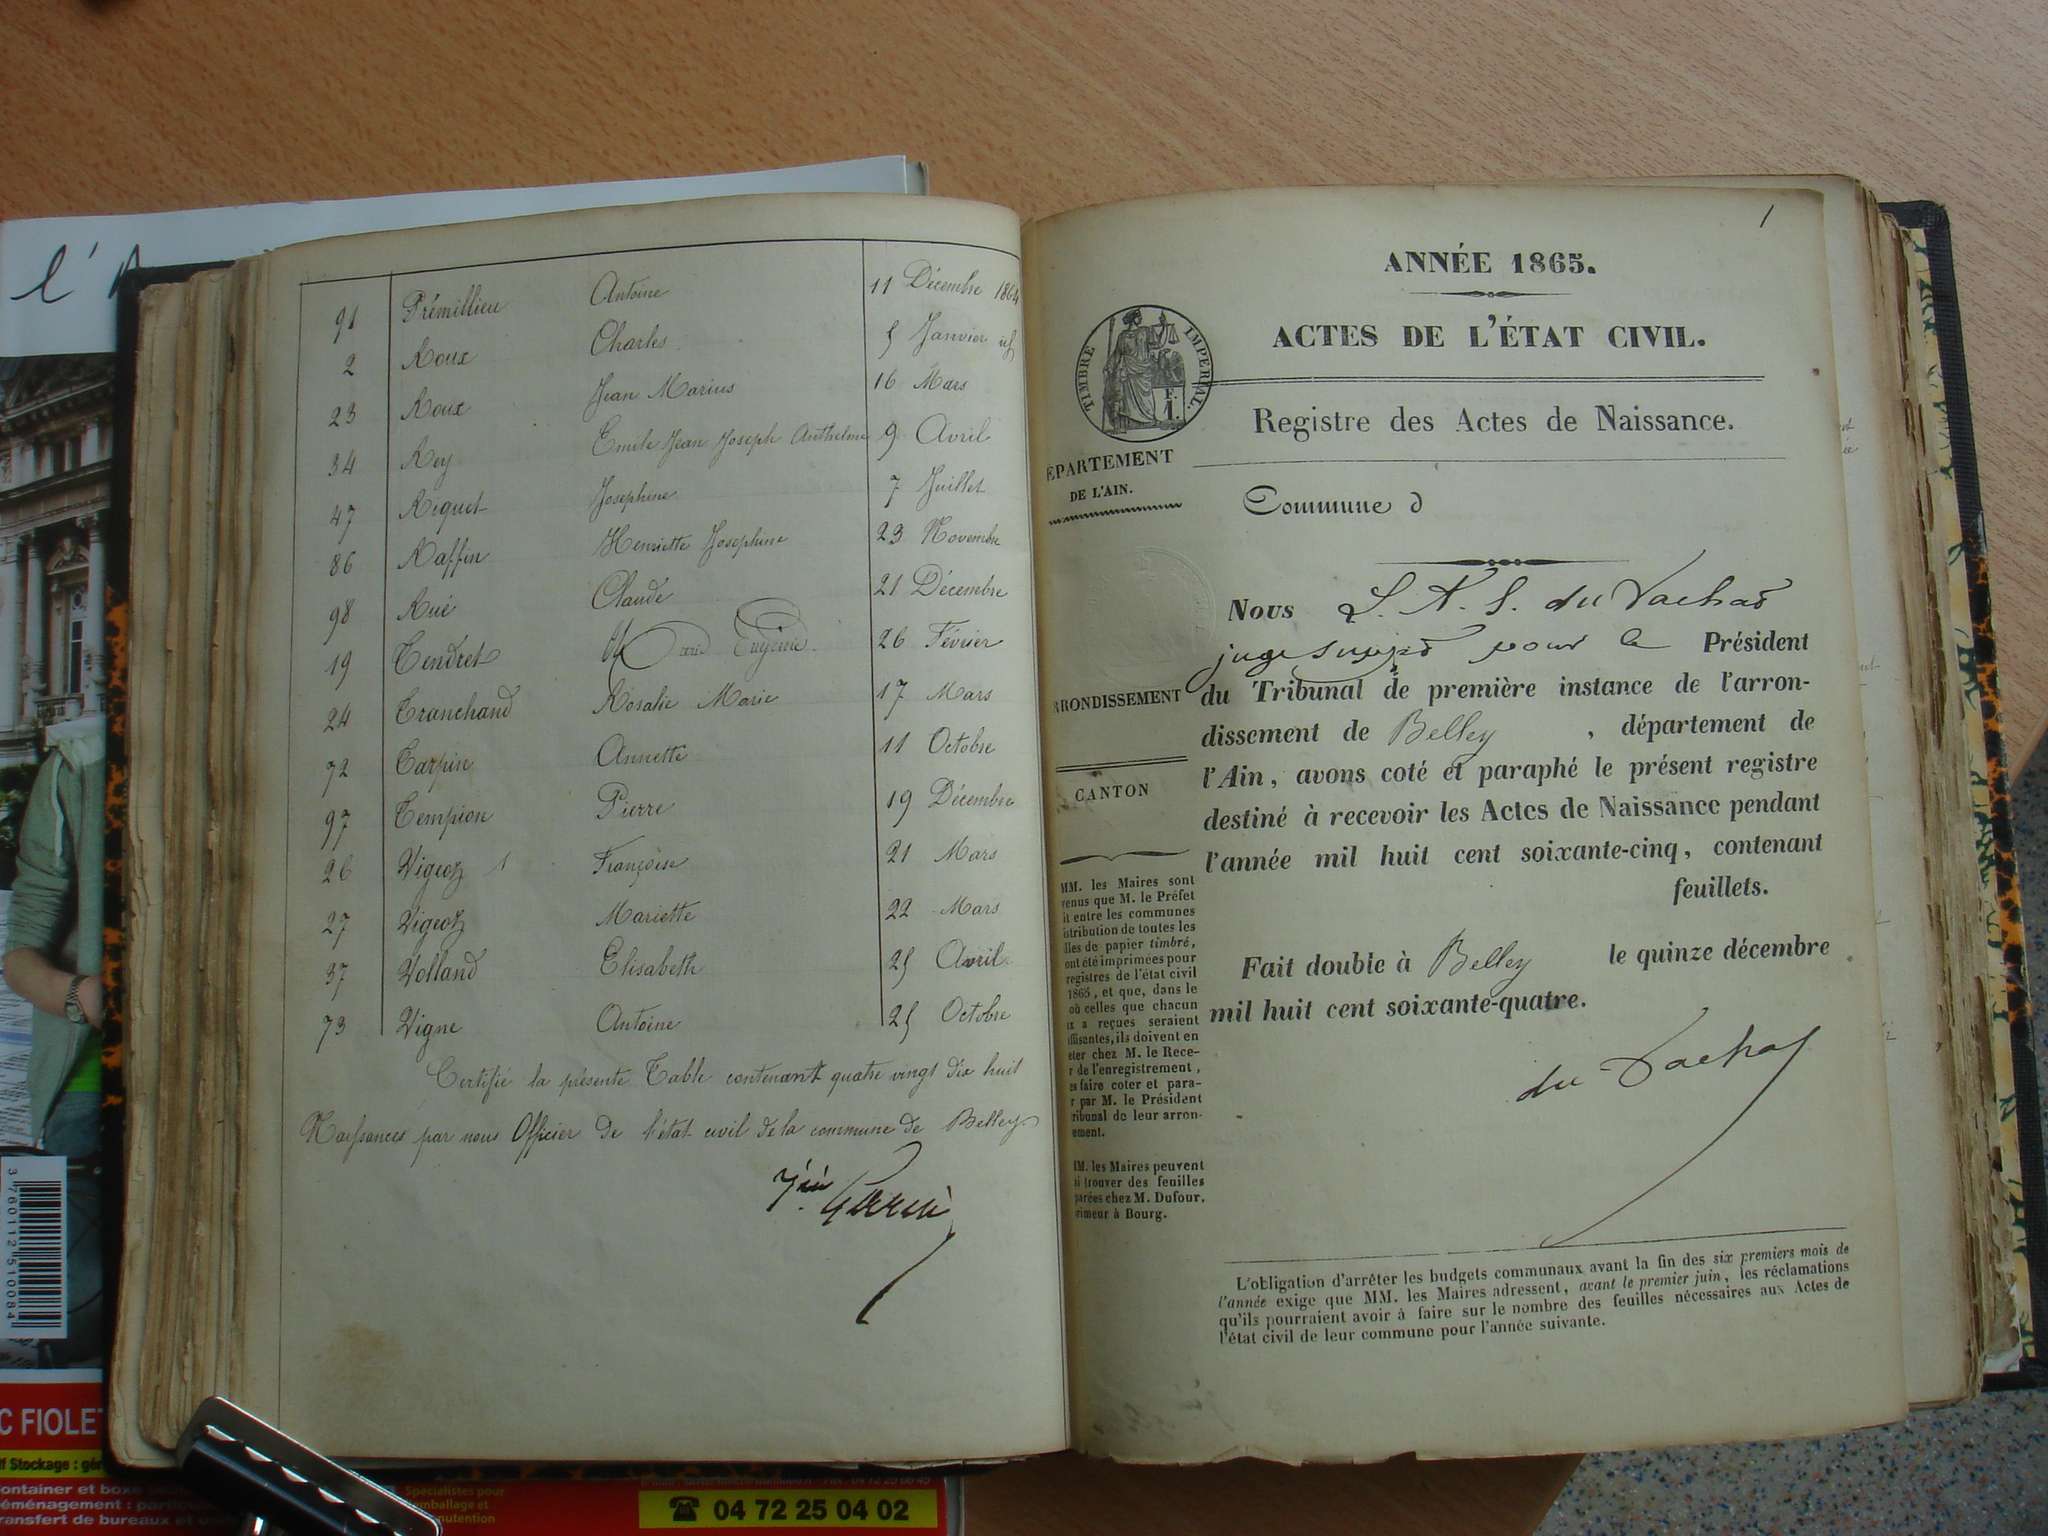 91 Prémillieu Antoine 11 Décembre 1864
2 Roux Charles 5 Janvier id
23 Roux Jean Marius 16 Mars
34 Rey Emile Jean Joseph Anthelme 9 Avril
47 Riquet Josephine 7 Juillet
86 Raffin Henriette Josephine 23 Novembre
98 Rué Claude 21 Décembre
19 Tendret Marie Eugénie 26 Février
24 Tranchand Rosalie Marie 17 Mars
72 Tarpin Annette 11 Octobre
97 Tempion Pierre 19 Décembre
26 Vigeoz 1 Françoise 21 Mars
27 Vigeoz Mariette 22 Mars
37 Volland Elisabeth 25 Avril
73 Vigne Antoine 25 Octobre
Certifié la présente Table contenant quatre vingt dix huit
Naissances par nous Officier de l'état civil de la commune de Belley
1
ANNÉE 1865.
ACTES DE L'ÉTAT CIVIL.
TIMBRE IMPERIAL.
Registre des Actes de Naissance.
ÉPARTEMENT
DE L'AIN.
Commune d
Nous du Vachat
juge pour le Président
du Tribunal de première instance de l'arron-
RRONDISSEMENT
dissement de Belley , département de
l'Ain, avons coté et paraphé le présent registre
CANTON
destiné à recevoir les Actes de Naissance pendant
l'année mil huit cent soixante-cinq, contenant
feuillets.
Fait double à Belley le quinze décembre
mil huit cent soixante-quatre.
du Vachat
MM. les Maires sont
enus que M. le Préfet
it entre les communes
stribution de toutes les
lles de papier timbré,
ont été imprimées pour
registres de l'état civil
1865, et que, dans le
où celles que chacun
x a reçues seraient
ffisantes, ils doivent en
eter chez M. le Rece-
r de l'enregistrement,
es faire coter et para-
r par M. le Président
ribunal de leur arron-
ement.
M. les Maires peuvent
i trouver des feuilles
parées chez M. Dufour,
rimeur à Bourg.
L'obligation d'arrêter les budgets communaux avant la fin des six premiers mois de
l'année exige que MM. les Maires adressent, avant le premier juin, les réclamations
qu'ils pourraient avoir à faire sur le nombre des feuilles nécessaires aux Actes de
l'état civil de leur commune pour l'année suivante.
l'
3 760112 510084
C FIOLET
ff Stockage : gér
ontainer et boxe
éménagement :
ransfert de bureaux et
Spécialistes pour
emballage et
nutention
☎ 04 72 25 04 02